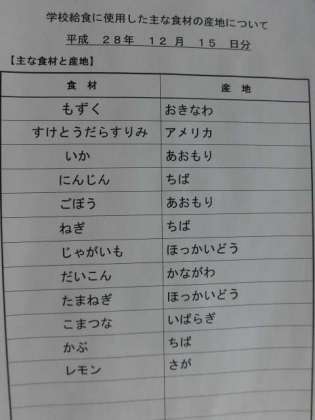 学校給食に使用した主な食材の産地について
平成 28年 12 月 15 日分
【主な食材と産地】
食 材 産 地
もずく おきなわ
すけとうだらすりみ アメリカ
いか あおもり
にんじん ちば
ごぼう あおもり
ねぎ ちば
じゃがいも ほっかいどう
だいこん かながわ
たまねぎ ほっかいどう
こまつな いばらぎ
かぶ ちば
レモン さが